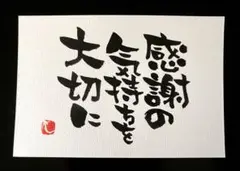 感謝の
気持ちを
大切に